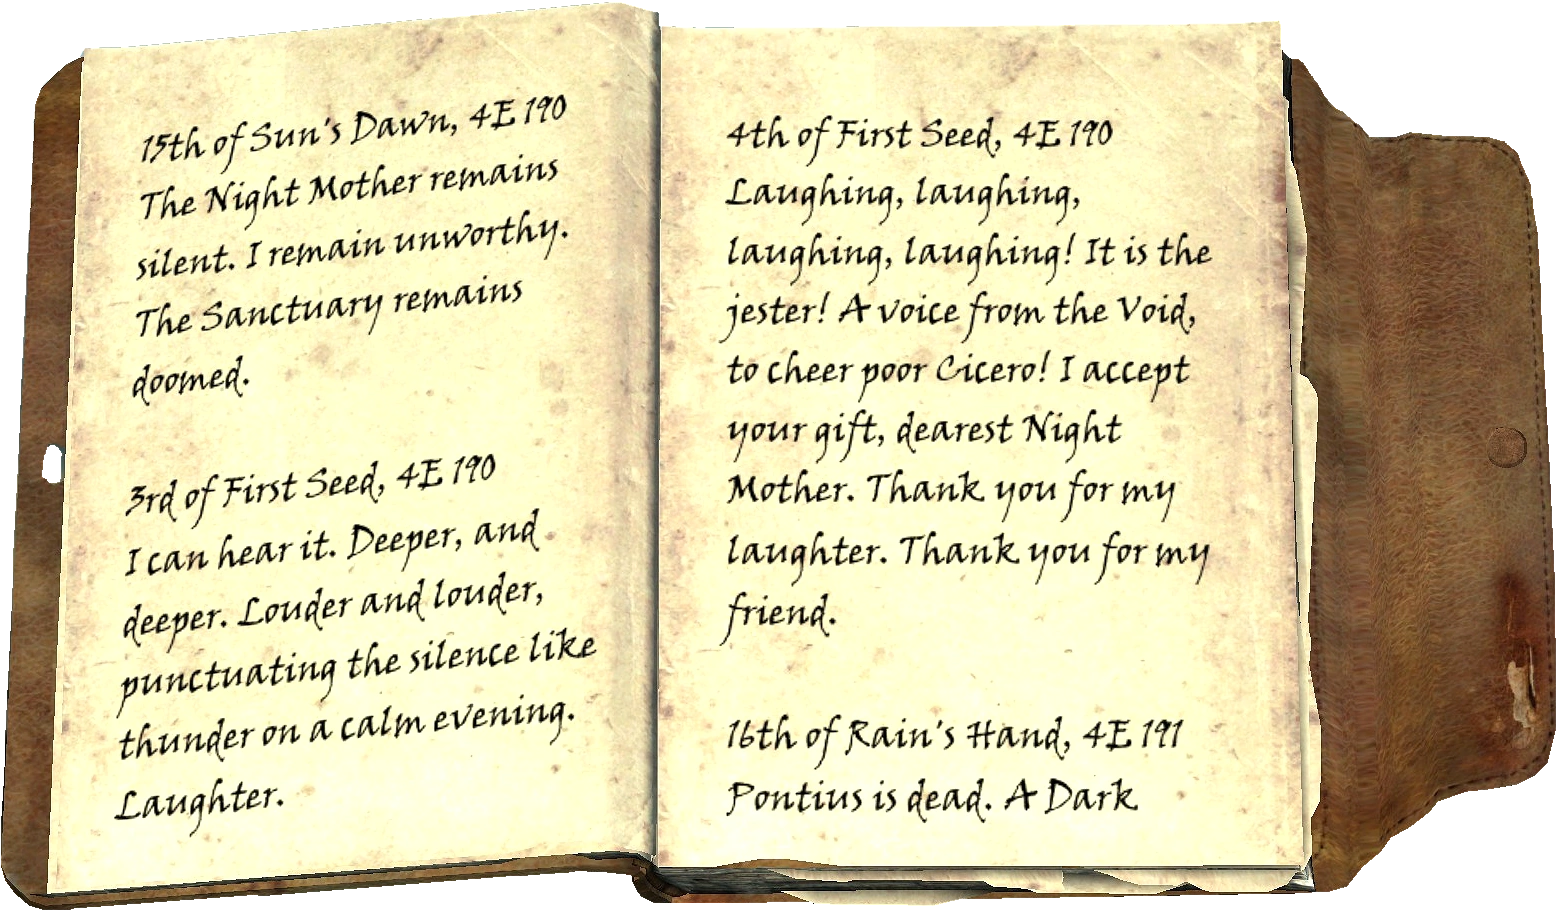 15th of Sun's Dawn, 4E 190
The Night Mother remains
silent. I remain unworthy.
The Sanctuary remains
doomed.
3rd of First Seed, 4E 190
I can hear it. Deeper, and
deeper. Louder and louder,
punctuating the silence like
thunder on a calm evening.
Laughter.
4th of First Seed, 4E 190
Laughing, laughing,
laughing, laughing! It is the
jester! A voice from the Void,
to cheer poor Cicero! I accept
your gift, dearest Night
Mother. Thank you for my
laughter. Thank you for my
friend.
16th of Rain's Hand, 4E 191
Pontius is dead. A Dark